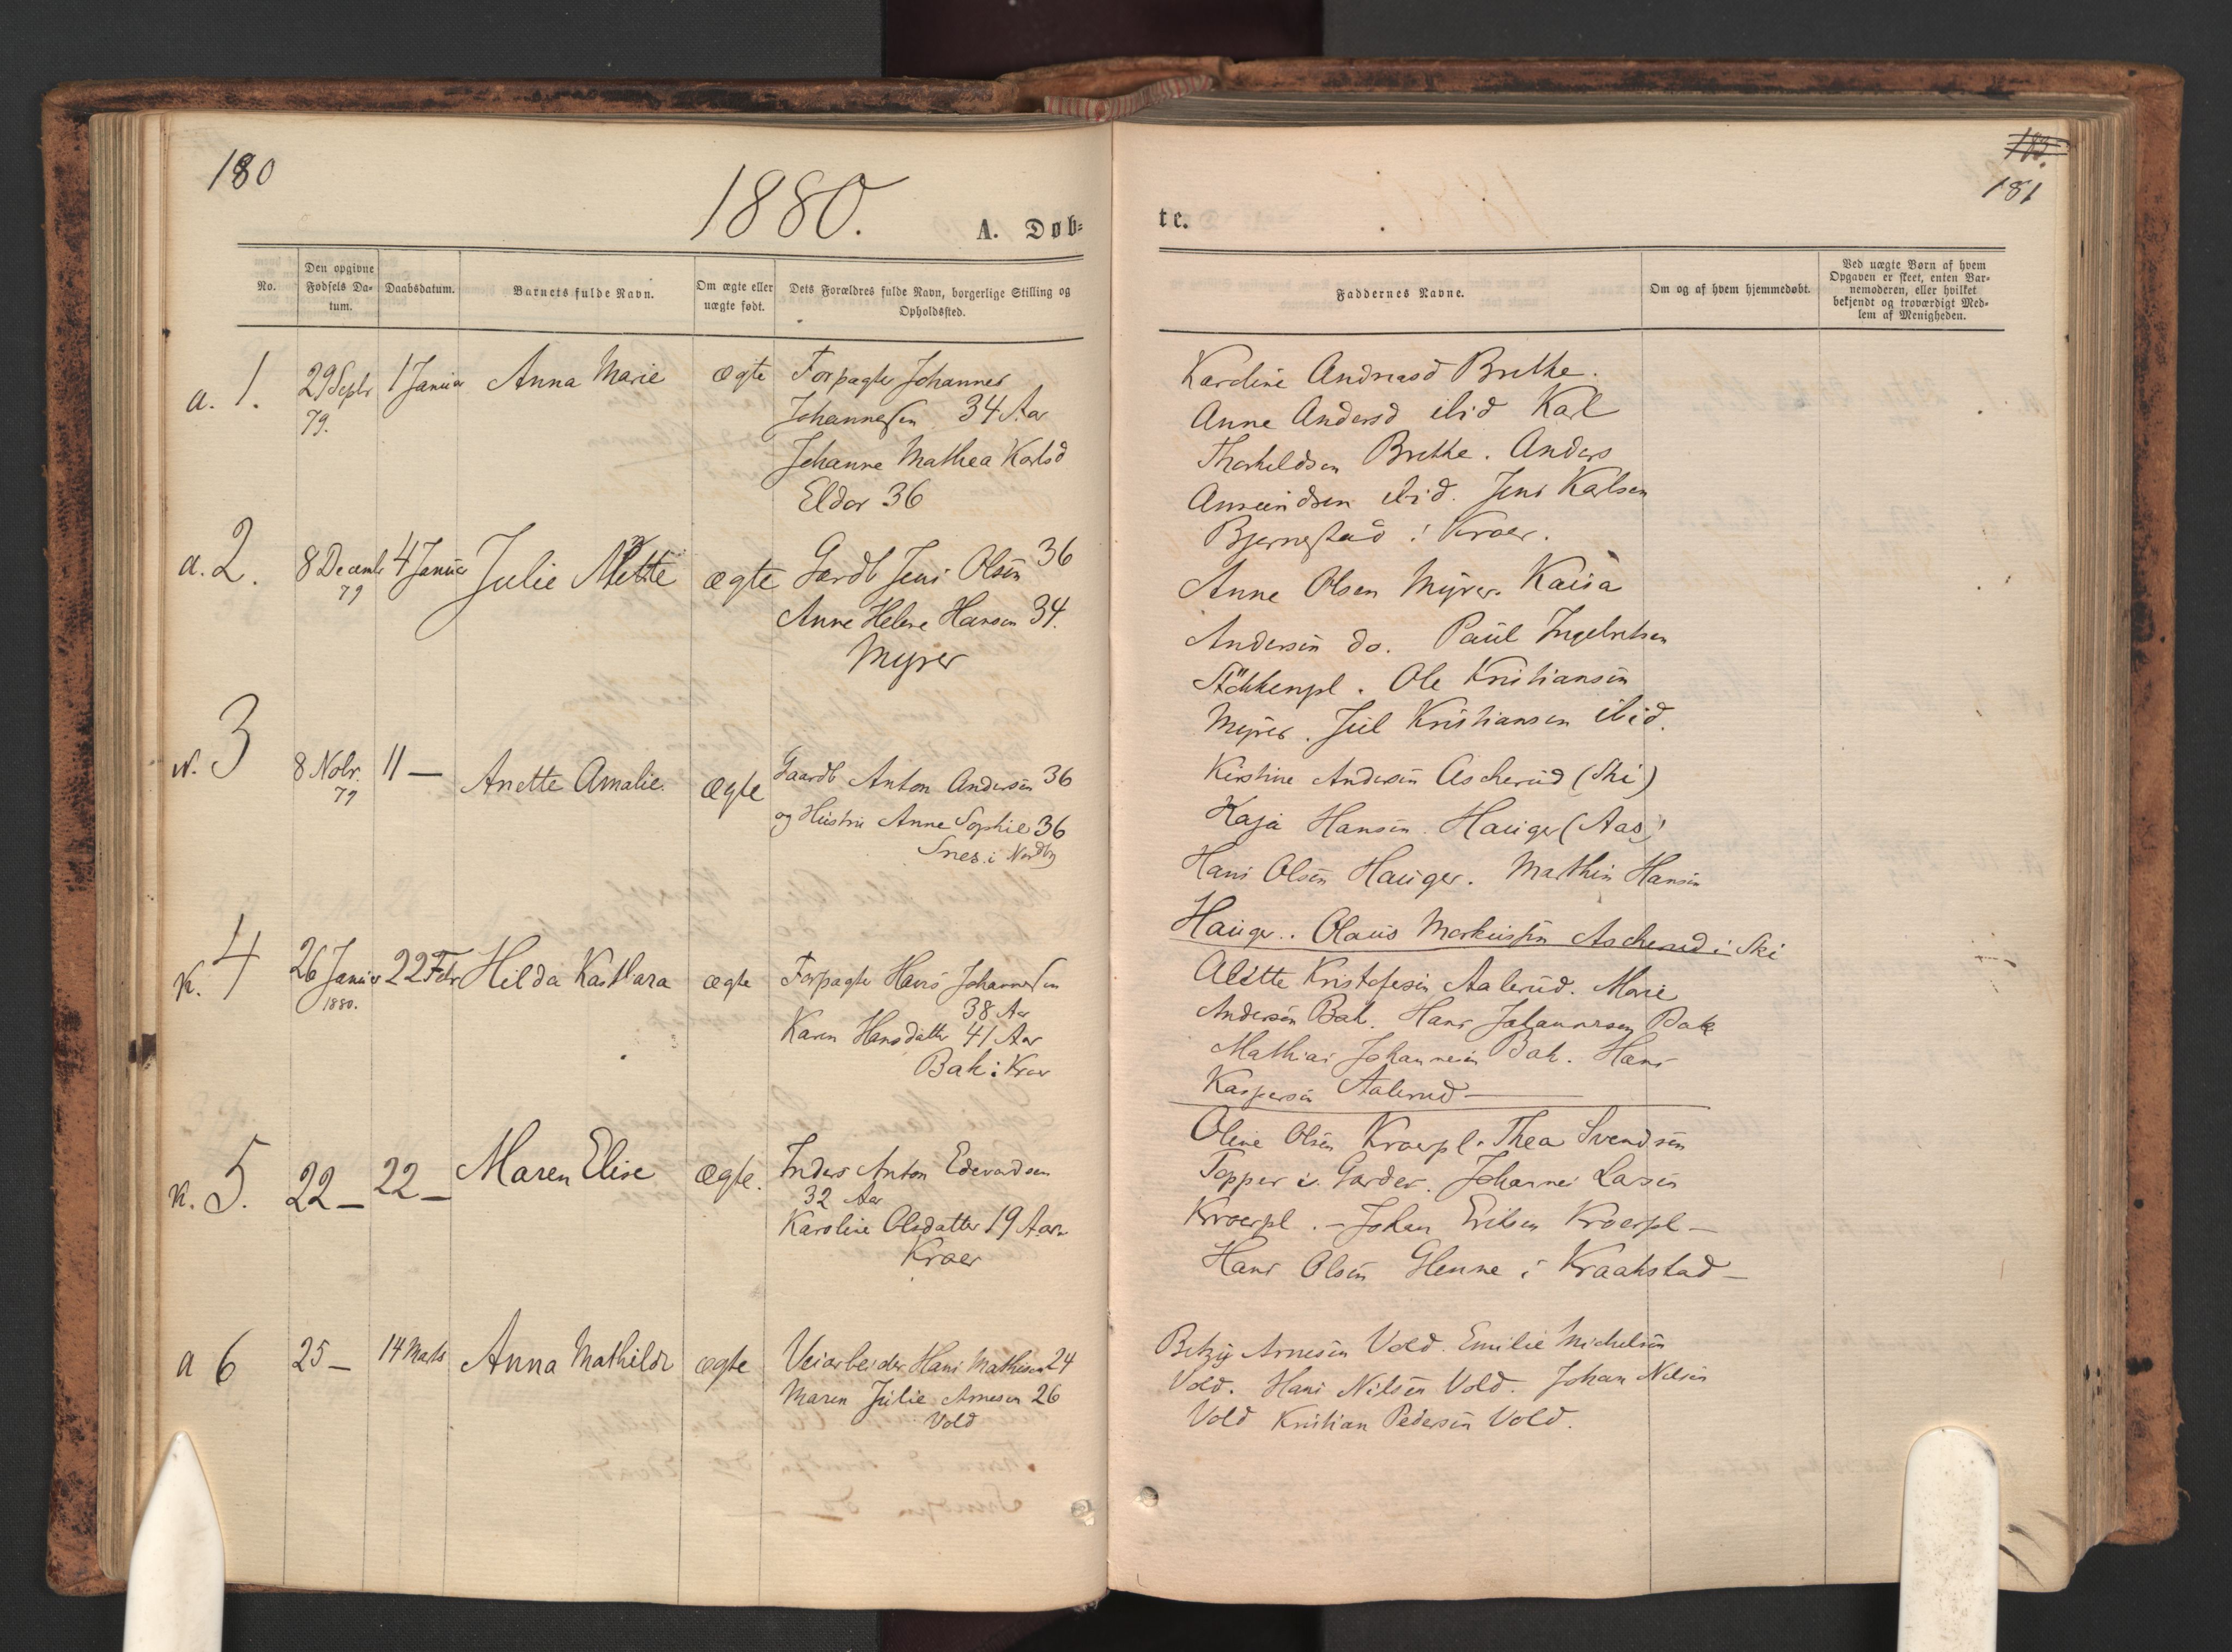 180
1880.
A. Døb-
No.
Den opgivne Fødsels Da-
tum.
Daabsdatum.
Barnets fulde Navn.
Om ægte eller
uægte født.
Dets Forældres fulde Navn, borgerlige Stilling og
Opholdssted.
a. 1.
29 Septr
79.
1 Januar
Anna Marie
ægte
Forpagter Johannes
Johannessen 34 Aar
Johanne Mathea Karlsd
Eldor 36
a. 2.
8 Decembr
79
4 Januar
Julie Mette
ægte
Gardb Jens Olsen 36
Anne Helene Hansen 34.
Myrer
N. 3
8 Nobr.
79
11 —
Anette Amalie.
ægte
Gaardb Anton Andersen 36
og Hustru Anne Sophie 36
Snes i Nordby
K. 4
26 Januar
1880.
22 Febr
Hilda
ægte
Forpagter Hans Johannessen
38 Aar
Karen Hansdatter 41 Aar
Bak i Kroer
K. 5.
22 —
22 —
Maren Elise
ægte.
Inders Anton Edevardsen
32 Aar
Karoline Olsdatter 19 Aar
Kroer
a 6
25 —
14 Marts
Anna Mathilde
ægte
Veiarbeider Hans Mathisen 24
Maren Julie Arnesen 26
Vold
183.
181
te.
Faddernes Navne.
Om og af hvem hjemmedøbt.
Ved uægte Børn af hvem
Opgaven er skeet, enten Bar-
nemoderen, eller hvilket
bekjendt og troværdigt Med-
lem af Menigheden.
Karoline Andreasd Brekke.
Anne Andersd ibid Karl
Thorkildsen Brekke. Anders
Amundsen ibid. Jens Karlsen
Bjørnestad i Kroer.
Anne Olsen Myrer. Kaisa
Andersen do. Paul Ingebretsen
Stökkenpl. Ole Kristiansen
Myrer. Jul Kristiansen ibid.
Kirstine Andersen Ascherud (Ski)
Kaja Hansen. Hauger (Aas)
Hans Olsen Hauger. Mathin Hansen
Hauger. Olaus Markussen Ascherud i Ski
Alette Kristofersen Aalerud. Marie
Andersen Bak. Hans Johannesen Bak
Mathias Johannesen Bak. Hans
Kaspersen Aalerud —
Oline Olsen Kroerpl. Thea Svendsen
Topper i Garder. Johannes Larsen
Kroerpl. — Johan Eriksen Kroerpl —
Hans Olsen Glenne i Kraakstad —
Betzy Arnesen Vold. Emilie Michelsen
Vold. Hans Nilsen Vold. Johan Nilsen
Vold Kristian Pedersen Vold.